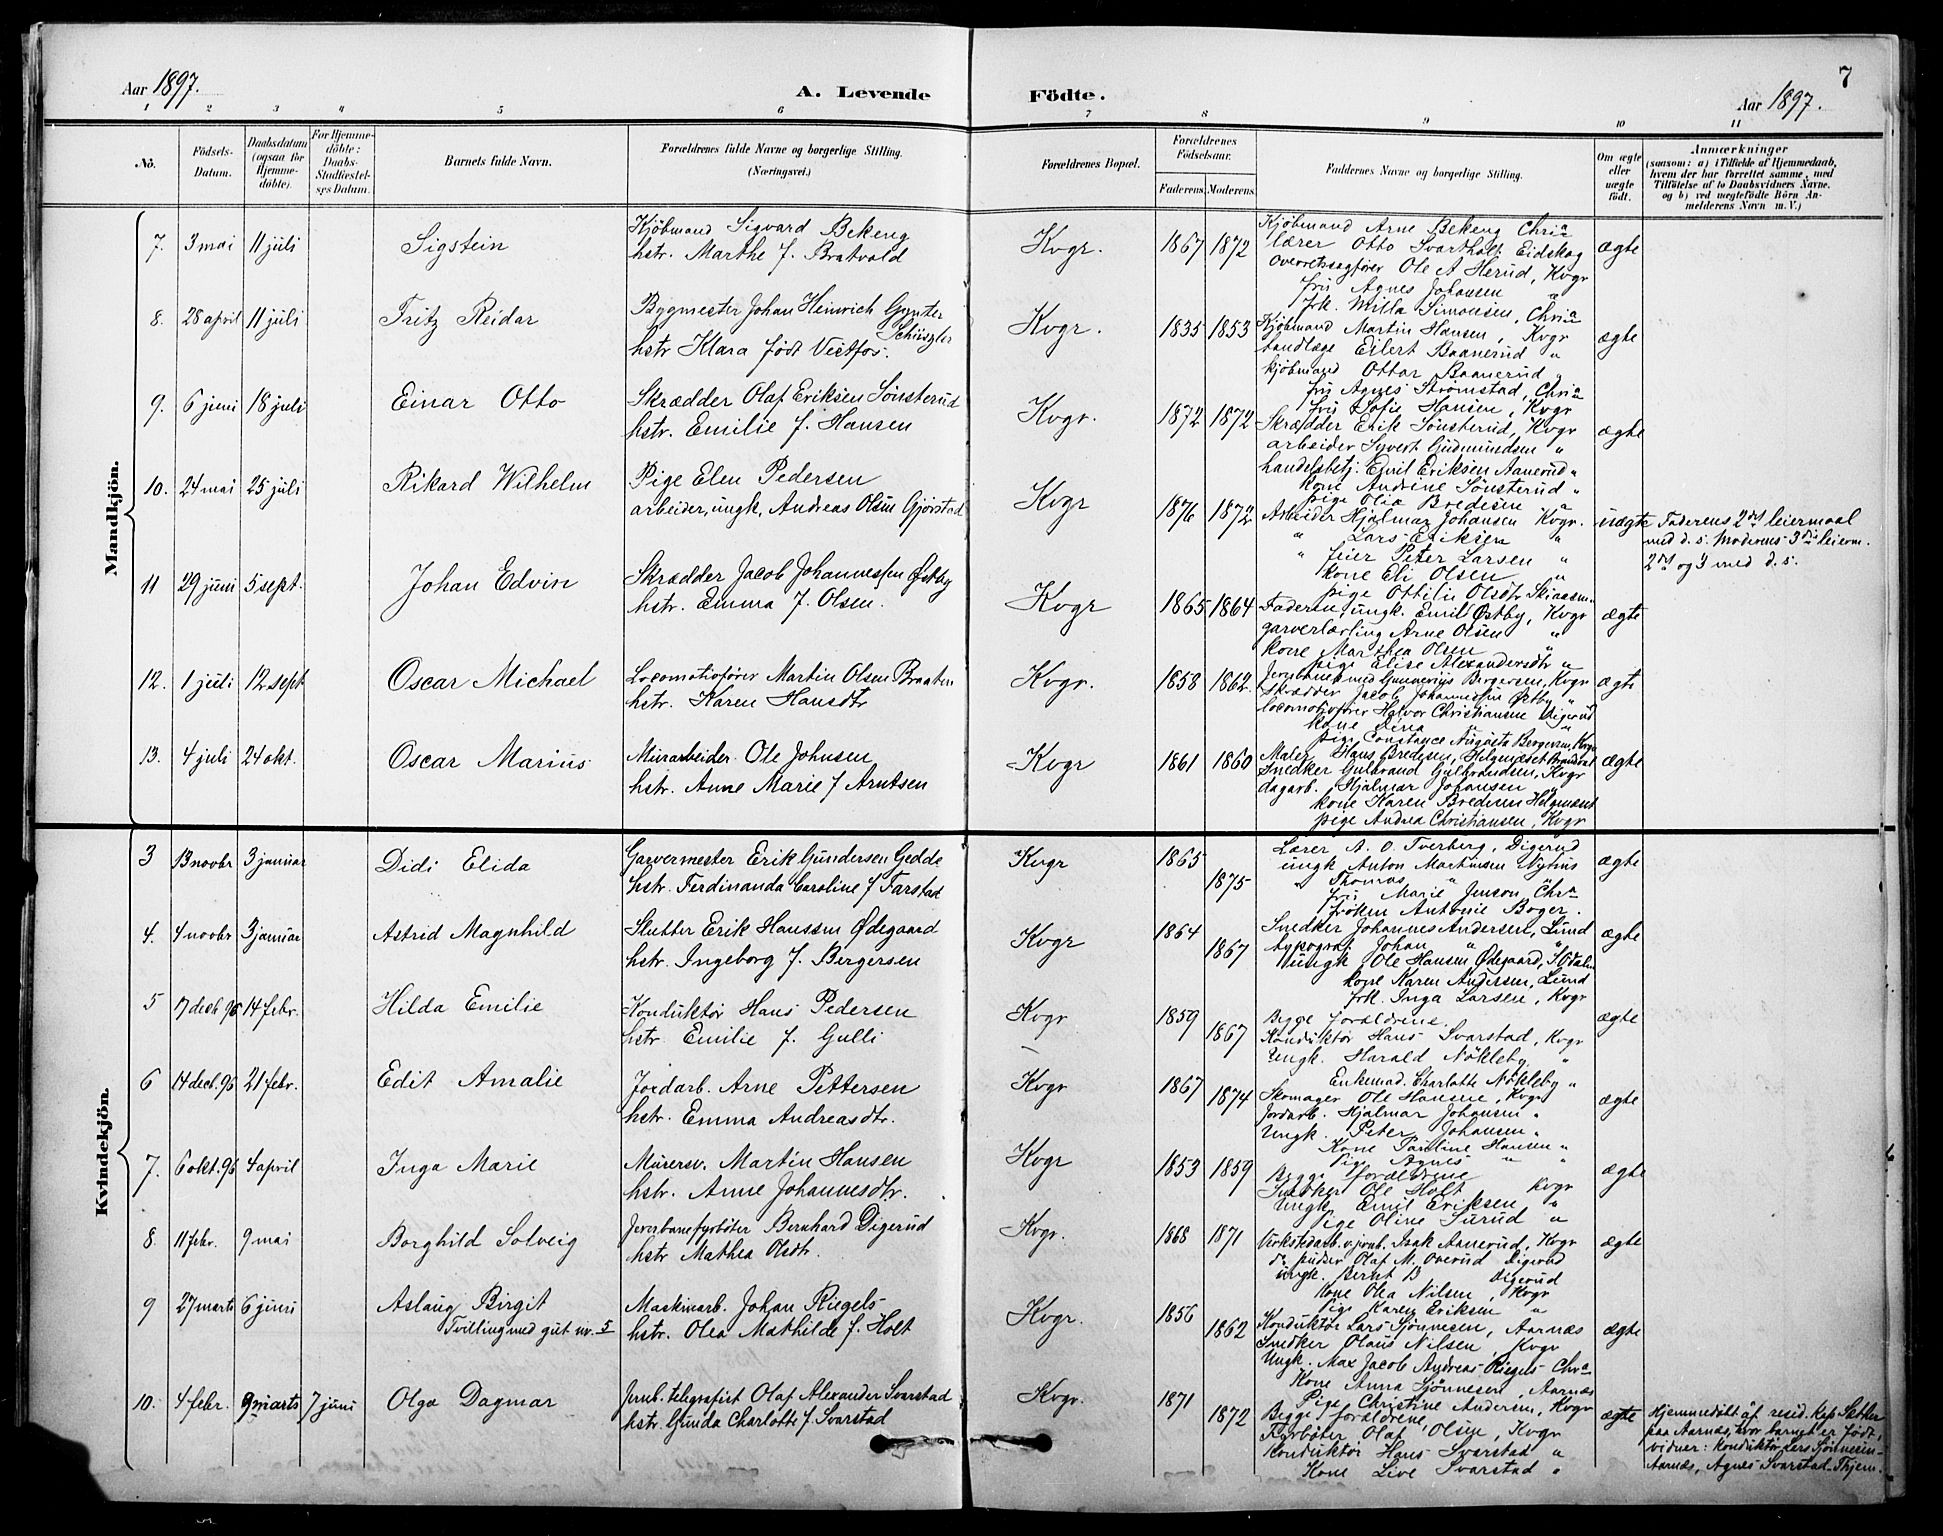 Aar 1897.
A. Levende Födte.
Aar 1897.
7
1 2 3 4 5 6 7 8 9 10 11
No.
Födsels-
Datum.
Daabsdatum
(ogsaa for
Hjemme-
döbte).
For Hjemme-
döbte:
Daabs-
Stadfæstel-
ses Datum.
Barnets fulde Navn.
Forældrenes fulde Navne og borgerlige Stilling.
(Næringsvei.)
Forældrenes Bopæl.
Forældrenes
Födselsaar.
Faderens. Moderens.
Faddernes Navne og borgerlige Stilling.
Om ægte
eller
uægte
født.
Anmærkninger
(saasom: a) i Tilfælde af Hjemmedaab,
hvem der har forrettet samme, med
Tilföielse af to Daabsvidners Navne,
og b) ved uægtefödte Börn An-
melderens Navn m. V.)
Mandkjön.
7. 3 mai 11 juli Sigstein
Kjöbmand Sigvard Bekeng
hstr. Marthe f. Bratvold
Kvgr. 1867 1872
Kjöbmand Arne Bekeng Chria
lærer Otto Svartholt Eidskog
overretssagfører Ole A Herud, Kvgr
fru Agnes Johansen "
frk. Milla Simonsen, Chria
ægte
8. 28 april 11 juli Fritz Reidar
Bygmester Johan Heinrich Gynter
Schüszler
hstr Klara født Vestfos.
Kvgr. 1835 1853
Kjöbmand Martin Hansen, Kvgr
tandlæge Eilert Baanerud "
kjöbmand Ottar Baanerud "
fru Agnes Strømstad, Chria
frk Sofie Hansen, Kvgr
ægte
9. 6 juni 18 juli Einar Otto
Skrædder Olaf Eriksen Sønsterud
hstr. Emilie f. Hansen
Kvgr. 1872 1872
Skrædder Erik Sønsterud, Kvgr
arbeider Syvert Gudmundsen "
handelsbetj. Emil Eriksen Aanerud "
kone Andrine Sønsterud "
pige Olia Bredesen "
ægte
10. 24 mai 25 juli Rikard Wilhelm
Pige Elen Pedersen
arbeider, ungk. Andreas Olsen Gjørstad
Kvgr 1876 1872
Arbeider Hjalmar Johansen Kvgr.
" Lars Eriksen "
" feier Peter Larsen "
kone Eli Olsen "
pige Ottilie Olsdtr
uægte
Faderens 2det leiermaal
med d. s. Moderens 3die leierm.
2det og 3 med d. s.
11 29 juni 5 sept. Johan Edvin
Skrædder Jacob Johannessen Østby
hstr. Emma f. Olsen.
Kvgr 1865 1864
Faderen, ungk. Emil Østby, Kvgr
garverlærling Arne Olsen "
kone Marthea Olsen "
pige Elise Alexandersdtr "
ægte
12. 1 juli 12 sept Oscar Michael
Locomotivfører Martin Olsen Braaten
hstr. Karen Hansdtr
Kvgr. 1858 1862.
Jernbanebmed Gunnerius Bergersen, Kvgr
Skrædder Jacob Johannessen Østby "
locomotivfører Halvor Christiansen Digerud
kone Dina "
pige Constance Augusta Bergersen, Kvgr
ægte
13. 4 juli 24 okt. Oscar Marius
Murarbeider Ole Johnsen
hstr. Anne Marie f Arntsen
Kvgr 1861 1860
Maler Hans Bredesen, Helgenæset Brandval
Snedker Gulbrand Gulbrandsen, Kvgr
dagarb. Hjalmar Johansen "
kone Karen Bredesen Helgenæset
pige Andrea Christiansen, Kvgr
ægte
Kvindekjön.
3 13 novbr 3 januar Didi Elida
Garvermester Erik Gundersen Gedde
hstr. Ferdinanda Caroline f Farstad
Kvgr 1865 1875
Lærer A. O. Tverberg, Digerud
ungk Anton Martinsen Nyhus
" Thomas "
frk Marie Jenson, Chria
frøken Antonie Boger.
ægte
4. 4 novbr 3 januar Astrid Magnhild
Slutter Erik Hanssen Ødegaard
hstr. Ingeborg f. Bergersen
Kvgr 1864 1867
Snedker Johannes Andersen, Lund
typograf Johan " "
ungk Ole Hansen Ødegaard, S Odalen
kone Karen Andersen, Lund
frk. Inga Larsen, Kvgr
ægte
5 17 decb 96 14 febr. Hilda Emilie
Konduktør Hans Pedersen
hstr Emilie f. Gulli
Kvgr 1859 1867
Begge forældrene
Konduktør Hans Svarstad, Kvgr
Ungk. Harald Nökleby "
Enkemad. Charlotte Nökleby "
ægte
6 14 decb. 96 21 febr. Edit Amalie
Jordarb. Arne Pettersen
hstr. Emma Andreasdtr.
Kvgr 1867 1874
Skomager Ole Hansen, Kvgr
Jordarb. Hjalmar Johansen "
Ungk. Peter Johansen "
Kone Pauline Hansen "
Pige Agnes " "
ægte
7. 6 okt. 96 4 april Inga Marie
Murersv. Martin Hansen
hstr. Anne Johannesdtr.
Kvgr 1853 1859
Begge forældrene
Snedker Ole Holt Kvgr
Ungk. Emil Eriksen "
Pige Oline Surud "
ægte
8. 11 febr. 9 mai Borghild Solveig
Jernbanefyrbøter Bernhard Digerud
hstr Mathea Olsdtr.
Kvgr. 1868 1871
Virkstedarb. v. jernb. Isak Aanerud, Kvgr
do pudser Olaf M. Overud Digerud
ungk. Bernt B Digerud
Kone Olea Nilsen, Kvgr
Pige Karen Eriksen "
ægte
9 27 marts 6 juni Aslaug Birgit
Tvilling med gut nr. 5
Maskinarb. Johan Riegels
hstr. Olea Mathilde f. Holt
Kvgr. 1856 1862
Konduktør Lars Sjønnesen, Aarnæs
Snedker Olaus Nilsen, Kvgr
Ungk. Max Jacob Andreas Riegels Chra
Kone Anna Sjønnesen, Aarnæs
Pige Christine Andersen, Kvgr
ægte
10. 4 febr. 9 marts 7 juni Olga Dagmar
Jernb. telegrafist Olaf Alexander Svarstad
hstr. Gunda Charlotte f. Svarstad
Kvgr. 1871 1872
Begge forældrene
Farbøter Olaf Olsen, Kvgr
Konduktør Hans Svarstad "
Kone Live Svarstad "
ægte
Hjemmedøbt af resid. kap. Sæther
paa Aarnæs, hvor barnet er født,
vidner: konduktør Lars Sjönnesen
Aarnæs, Agnes Svarstad